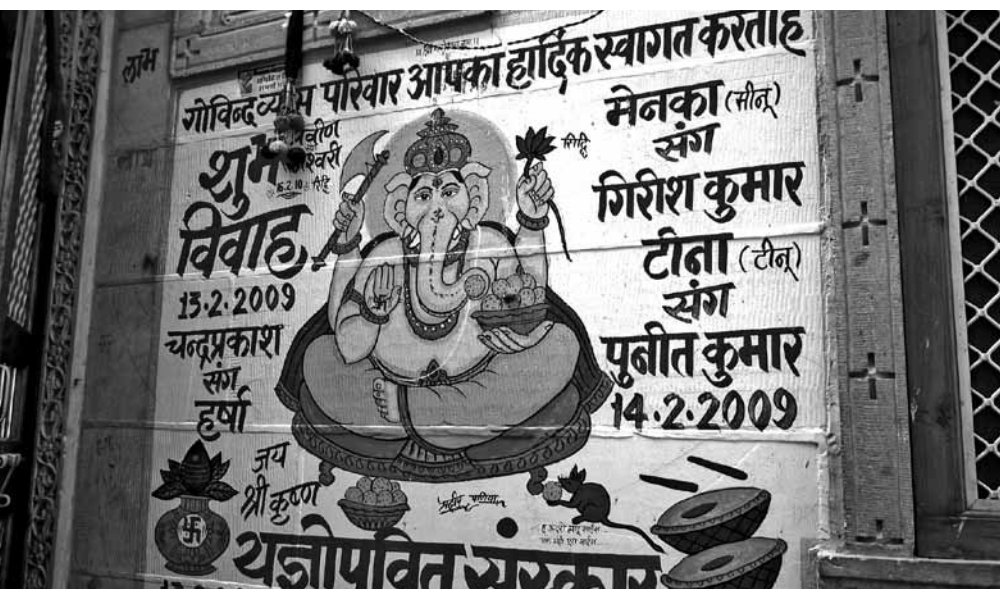 लाभ
गोविन्द व्यास परिवार आपका हार्दिक स्वागत करता है
शुभ
विवाह
13.2.2009
चन्द्रप्रकाश
संग
हर्षा
जय
श्री कृष्ण
मेनका (मीनू)
संग
गिरीश कुमार
टीना (टीनू)
संग
पुनीत कुमार
14.2.2009
यज्ञोपवित संस्कार